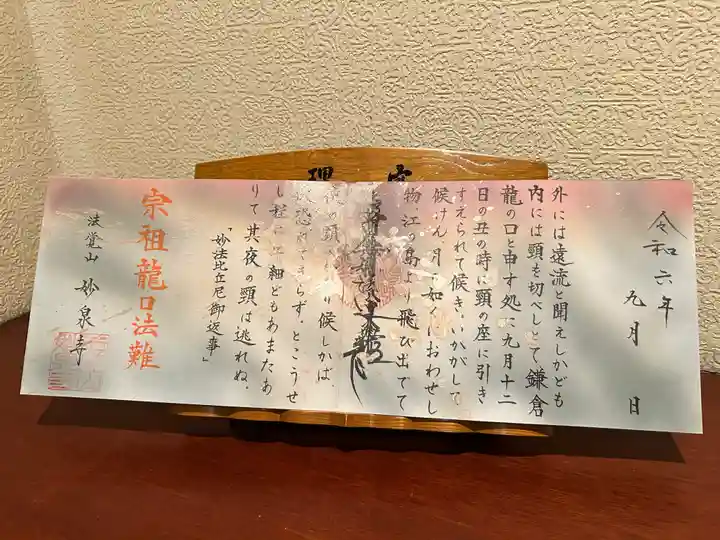 令和六年
九月 日
外には遠流と聞えしかども
内には頸を切べしとて鎌倉
龍の口と申す処に九月十二
日の丑の時に頸の座に引き
すえられて候き。いかがして
候けん、月の如くにおわせし
物江の島より飛び出でて
候しかば
とこうせ
細どもあまたあ
りて其夜の頸は逃れぬ。
「妙法比丘尼御返事」
宗祖龍口法難
法覚山 妙泉寺